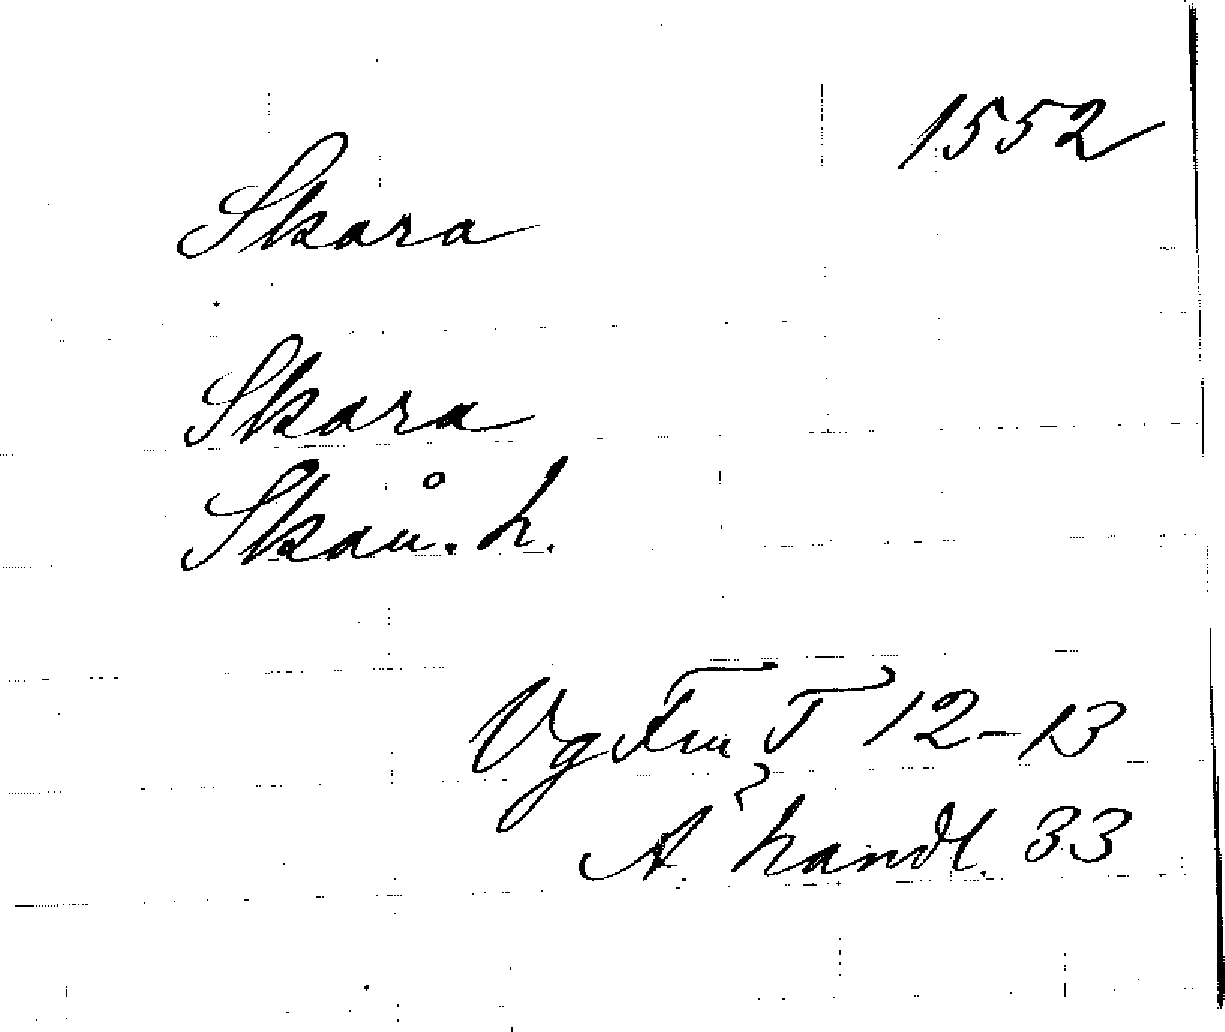 1552
Skara
Skara
Skån. h.
Vg Fm T 12-13
A handl. 33